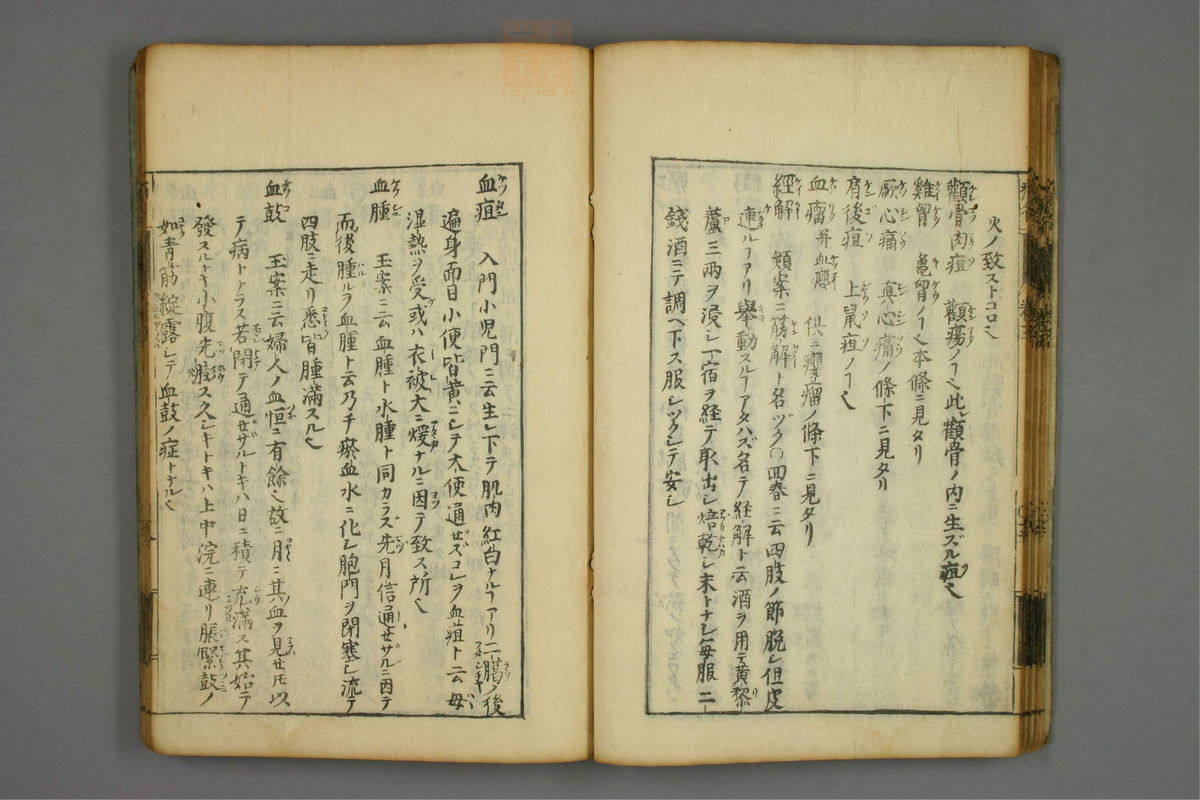 火ノ致ストコロ也
顴骨肉疽 顴瘍ノヿ也此レ顴骨ノ内ニ生ズル疽也
雞胷 龜胷ノヿ也本條ニ見タリ
厥心痛 真心痛ノ條下ニ見タリ
肩後疽 上鼠疽ノヿ也
血瘤 并血癭 倶ニ癭瘤ノ條下ニ見タリ
經解 類案ニ筋解ト名ヅク〇回春ニ云四肢ノ節脱シ但皮
連ルヿアリ擧動スルヿアタハズ名テ経解ト云酒ヲ用テ黄黎
蘆三兩ヲ浸シ一宿ヲ経テ取出シ焙乾シ末トナシ毎服二
錢酒ニテ調ヘ下ス服シツクシテ安シ
血疽 入門小児門ニ云生レ下テ肌肉紅白ナルヿアリ二臈ノ後
遍身面目小便皆黄ニシテ大便通ぜズコレヲ血疽ト云母
湿熱ヲ受或ハ衣被大ニ煖ナルニ因テ致ス所也
血腫 玉案ニ云血腫ト水腫ト同カラズ先月信通せザルニ因テ
而後腫ルヲ血腫ト云乃チ瘀血水ニ化シ胞門ヲ閉塞シ流テ
四肢ニ走リ悉皆腫滿スル也
血鼓 玉案ニ云婦人ノ血恒ニ有餘也故ニ月ニ其血ヲ見せ以
テ病トトラス若閉テ通せザルトキハ日ニ積テ充滿ス其始テ
發スルトキ小腹先脹ス久シキトキハ上中浣ニ連リ脹緊鼓ノ
如青筋綻露シテ血鼓ノ症トナル也